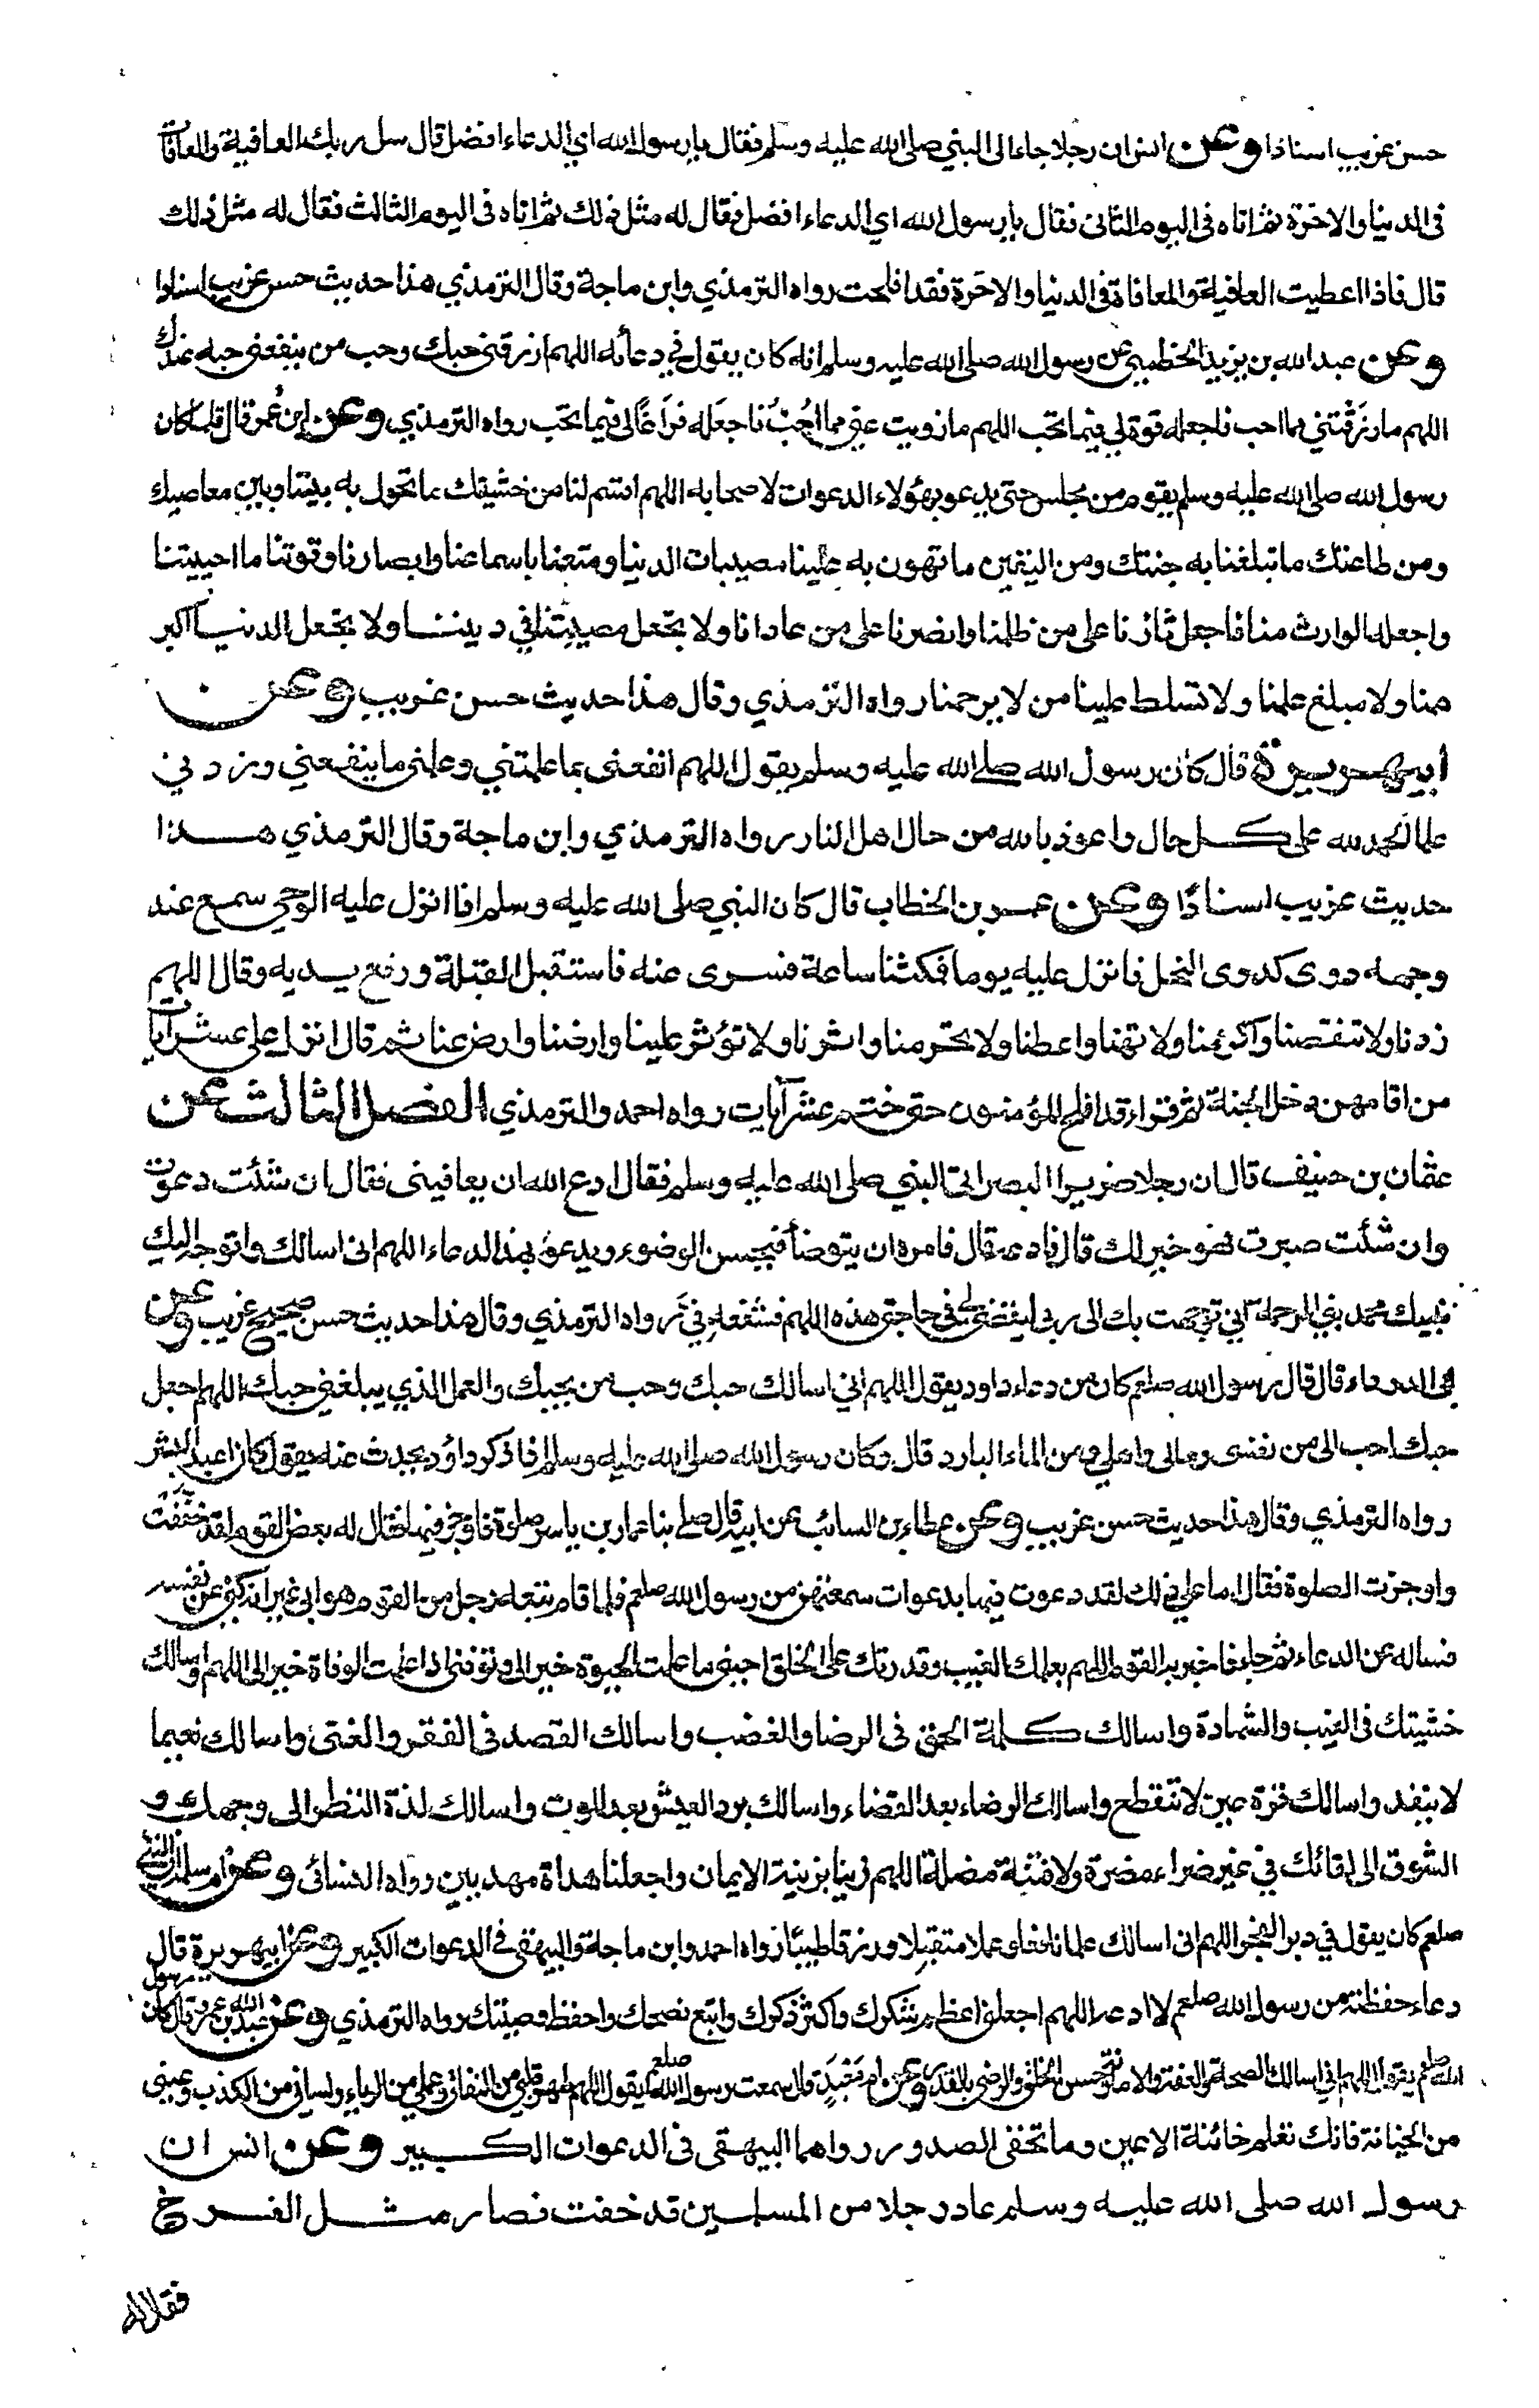 حسن غريب اسنادا وعن انس ان رجلا جاء الى النبي صلى الله عليه وسلم فقال يا رسول الله اي الدعاء افضل قال سل ربك العافية والمعافات
فى الدنيا والاخرة ثم اتاه فى اليوم الثانى فقال يا رسول الله اي الدعاء افضل فقال له مثل ذلك ثم اتاه فى اليوم الثالث فقال له مثل ذلك
قال فاذا اعطيت العافية والمعافاة فى الدنيا والاخرة فقد افلحت رواه الترمذي وابن ماجة وقال الترمذي هذا حديث حسن غريب اسنادا
وعن عبد الله بن يزيد الخطمي عن رسول الله صلى الله عليه وسلم انه كان يقول في دعائه اللهم ارزقنى حبك وحب من ينفعنى حبه عندك
اللهم ما رزقتني مما احب فاجعله قوة لي فيما تحب اللهم ما زويت عني مما احب فاجعله فراغا لى فيما تحب رواه الترمذي وعن ابن عمر قال قلما كان
رسول الله صلى الله عليه وسلم يقوم من مجلس حتى يدعو بهؤلاء الدعوات لاصحابه اللهم اقسم لنا من خشيتك ما تحول به بيننا وبين معاصيك
ومن طاعتك ما تبلغنا به جنتك ومن اليقين ما تهون به علينا مصيبات الدنيا ومتعنا باسماعنا وابصارنا وقوتنا ما احييتنا
واجعله الوارث منا فاجعل ثارنا على من ظلمنا وانصرنا على من عادانا ولا تجعل مصيبتنا في ديننا ولا تجعل الدنيا اكبر
همنا ولا مبلغ علمنا ولا تسلط علينا من لا يرحمنا رواه الترمذي وقال هذا حديث حسن غريب وعن
ابي هريرة قال كان رسول الله صلى الله عليه وسلم يقول اللهم انفعنى بما علمتني وعلمنى ما ينفعني وزدني
علما الحمد لله على كل حال واعوذ بالله من حال اهل النار رواه الترمذي وابن ماجة وقال الترمذي هذا
حديث غريب اسنادا وعن عمر بن الخطاب قال كان النبي صلى الله عليه وسلم اذا انزل عليه الوحي سمع عند
وجهه دوى كدوى النحل فانزل عليه يوما فمكثنا ساعة فسرى عنه فاستقبل القبلة ورفع يديه وقال اللهم
زدنا ولا تنقصنا واكرمنا ولا تهنا واعطنا ولا تحرمنا واثرنا ولا تؤثر علينا وارضنا وارض عنا ثم قال انزل على عشر آيات
من اقامهن دخل الجنة ثم قراء قد افلح المؤمنون حتى ختم عشر آيات رواه احمد والترمذي الفصل الثالث عن
عثمان بن حنيف قال ان رجلا ضرير البصر اتى النبي صلى الله عليه وسلم فقال ادع الله ان يعافينى فقال ان شئت دعوت
وان شئت صبرت فهو خير لك قال فادعه قال فامره ان يتوضأ فيحسن الوضوء ويدعو بهذا الدعاء اللهم انى اسالك واتوجه اليك
بنبيك محمد نبي الرحمة اني توجهت بك الى ربى ليقضى لي فى حاجتى هذه اللهم فشفعه في رواه الترمذي وقال هذا حديث حسن صحيح غريب وعن
ابى الدرداء قال قال رسول الله صلعم كان من دعاء داود يقول اللهم اني اسالك حبك وحب من يحبك والعمل الذي يبلغني حبك اللهم اجعل
حبك احب الى من نفسى ومالى واهلي ومن الماء البارد قال وكان رسول الله صلى الله عليه وسلم اذا ذكر داود يحدث عنه يقول كان اعبد البشر
رواه الترمذي وقال هذا حديث حسن غريب وعن عطاء بن السائب عن ابيه قال صلى بنا عمار بن ياسر صلوة فاوجز فيها فقال له بعض القوم لقد خففت
واوجزت الصلوة فقال اما علي ذلك لقد دعوت فيها بدعوات سمعتهن من رسول الله صلعم فلما قام تبعه رجل من القوم هو ابي غير انه كنى عن نفسه
فساله عن الدعاء ثم جاء فاخبر به القوم اللهم بعلمك الغيب وقدرتك على الخلق احينى ما علمت الحيوة خيرا لى وتوفنى اذا علمت الوفاة خيرا لى اللهم واسالك
خشيتك فى الغيب والشهادة واسالك كلمة الحق فى الرضا والغضب واسالك القصد فى الفقر والغنى واسالك نعيما
لا ينفد واسالك قرة عين لا تنقطع واسالك الرضاء بعد القضاء واسالك برد العيش بعد الموت واسالك لذة النظر الى وجهك و
الشوق الى لقائك في غير ضراء مضرة ولا فتنة مضلة اللهم زينا بزينة الايمان واجعلنا هداة مهديين رواه النسائى وعن ام سلمة ان النبي
صلعم كان يقول في دبر الفجر اللهم انى اسالك علما نافعا وعملا متقبلا ورزقا طيبا رواه احمد وابن ماجة والبيهقى فى الدعوات الكبير وعن ابي هريرة قال
دعاء حفظته من رسول الله صلعم لا ادعه اللهم اجعلني اعظم شكرك واكثر ذكرك واتبع نصحك واحفظ وصيتك رواه الترمذي وعن عبد الله بن عمر قال كان رسول
الله صلعم يقول اللهم اني اسالك الصحة والعفة والامانة وحسن الخلق والرضى بالقدر وعن ام معبد قال سمعت رسول الله صلعم يقول اللهم طهر قلبي من النفاق وعملي من الرياء ولسانى من الكذب وعينى
من الخيانة فانك تعلم خائنة الاعين وما تخفى الصدور رواهما البيهقى فى الدعوات الكبير وعن انس ان
رسول الله صلى الله عليه وسلم عاد رجلا من المسلمين قد خفت فصار مثل الفرخ
فقال له